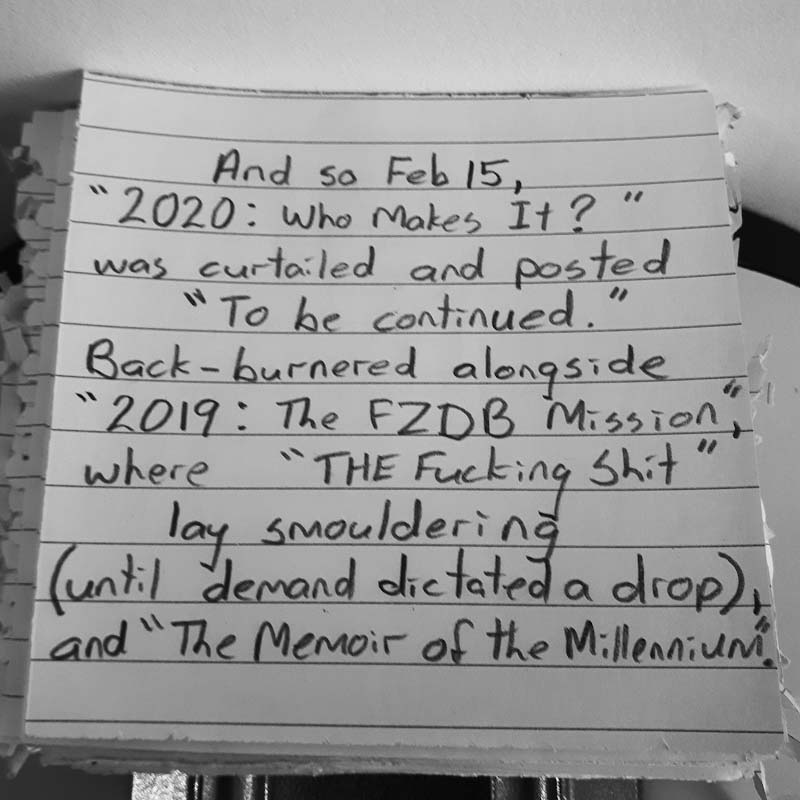 And so Feb 15,
"2020: Who Makes It?"
was curtailed and posted
"To be continued."
Back-burnered alongside
"2019: The FZDB Mission",
where "THE Fucking Shit"
lay smouldering
(until demand dictated a drop),
and "The Memoir of the Millennium".